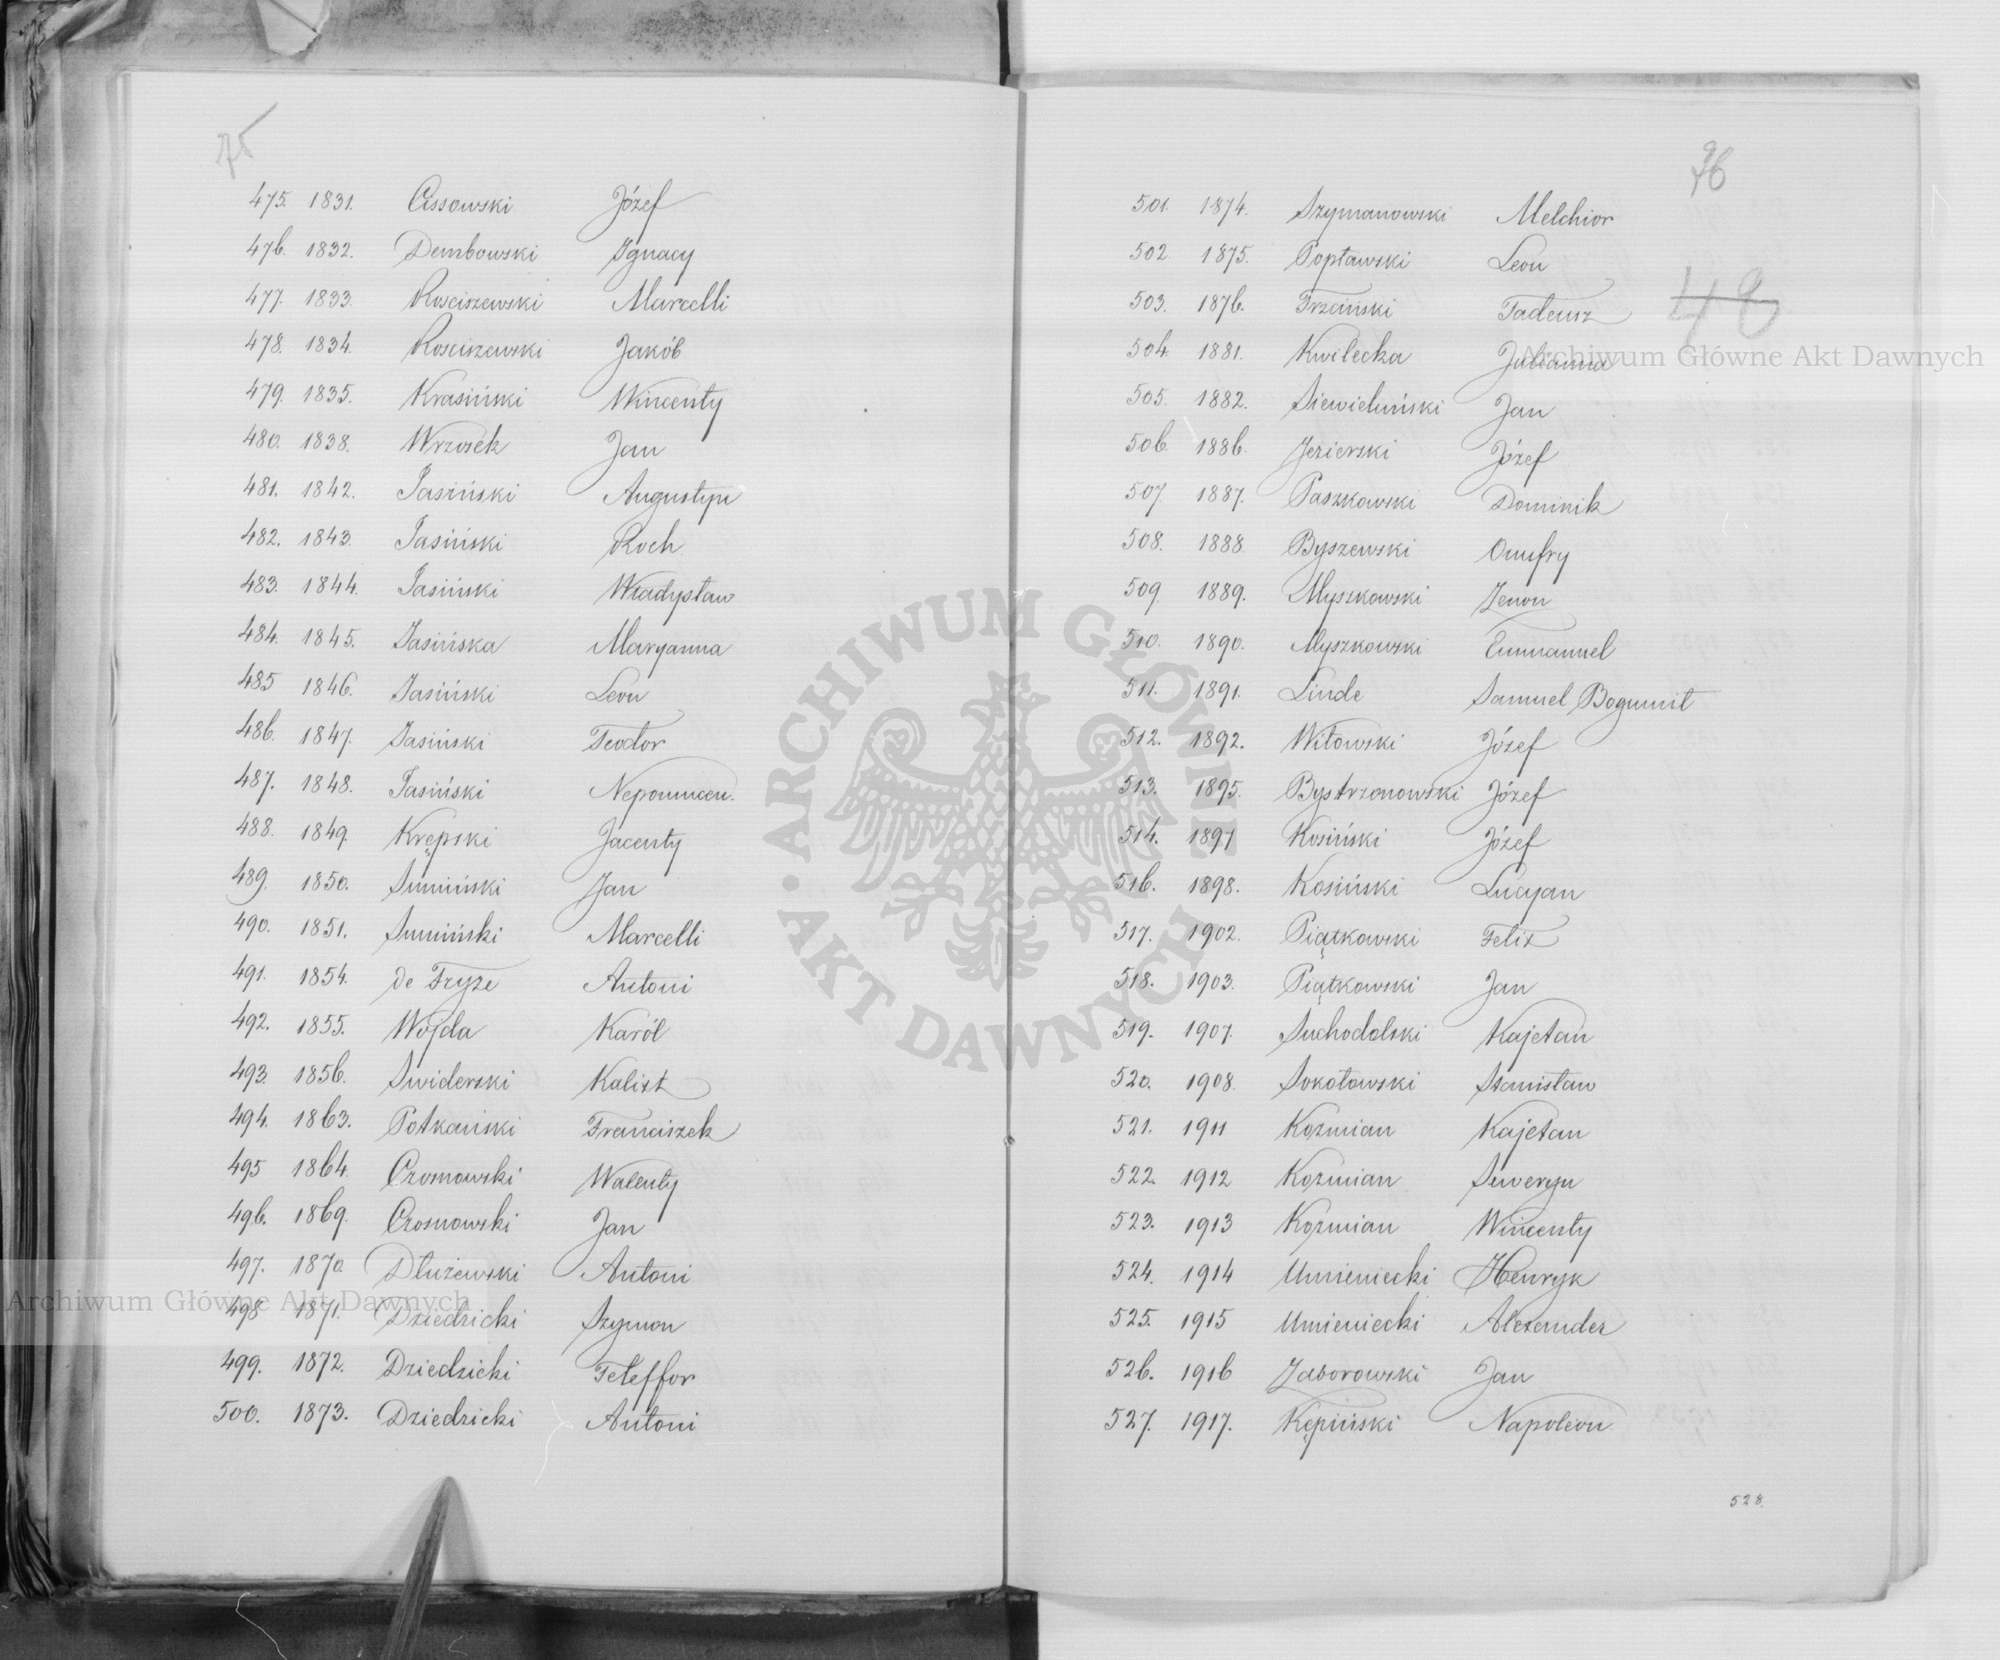 75
475. 1831. Cissowski Józef
476. 1832. Dembowski Ignacy
477. 1833. Rosciszewski Marcelli
478. 1834. Rosciszewski Jakób
479. 1835. Krasiński Wincenty
480. 1838. Wrzosek Jan
481. 1842. Jasiński Augustyn
482. 1843. Jasiński Roch
483. 1844. Jasiński Władysław
484. 1845. Jasińska Maryanna
485 1846. Jasiński Leon
486. 1847. Jasiński Teodor
487. 1848. Jasiński Nepomucen.
488. 1849. Krępski Jacenty
489. 1850. Sumiński Jan
490. 1851. Sumiński Marcelli
491. 1854. de Fryze Antoni
492. 1855. Wojda Karól
493. 1856. Swiderski Kalixt
494. 1863. Potkański Franciszek
495 1864. Czosnowski Walenty
496. 1869. Czosnowski Jan
497. 1870. Dłużewski Antoni
498 1871. Dziedzicki Szymon
499. 1872. Dziedzicki Teleffor
500. 1873. Dziedzicki Antoni
76
48
501. 1874. Szymanowski Melchior
502 1875. Popławski Leon
503. 1876. Trzciński Tadeusz
504. 1881. Kwilecka Julianna
505. 1882. Siewieluński Jan
506. 1886. Jezierski Józef
507. 1887. Paszkowski Dominik
508. 1888. Byszewski Onufry
509. 1889. Myszkowski Zenon
510. 1890. Myszkowski Emmanuel
511. 1891. Linde Samuel Bogumił
512. 1892. Witowski Józef
513. 1895. Bystrzonowski Józef
514. 1897 Kosiński Józef
516. 1898. Kosiński Lucyan
517. 1902. Piątkowski Felix
518. 1903. Piątkowski Jan
519. 1907. Suchodolski Kajetan
520. 1908. Sokołowski Stanisław
521. 1911 Kozmian Kajetan
522. 1912 Kozmian Seweryn
523. 1913 Kozmian Wincenty
524. 1914 Umieniecki Henryk
525. 1915 Umieniecki Alexander
526. 1916 Zaborowski Jan
527. 1917. Kępiński Napoleon
528.
Archiwum Główne Akt Dawnych
Archiwum Główne Akt Dawnych
ARCHIWUM GŁÓWNE • AKT DAWNYCH